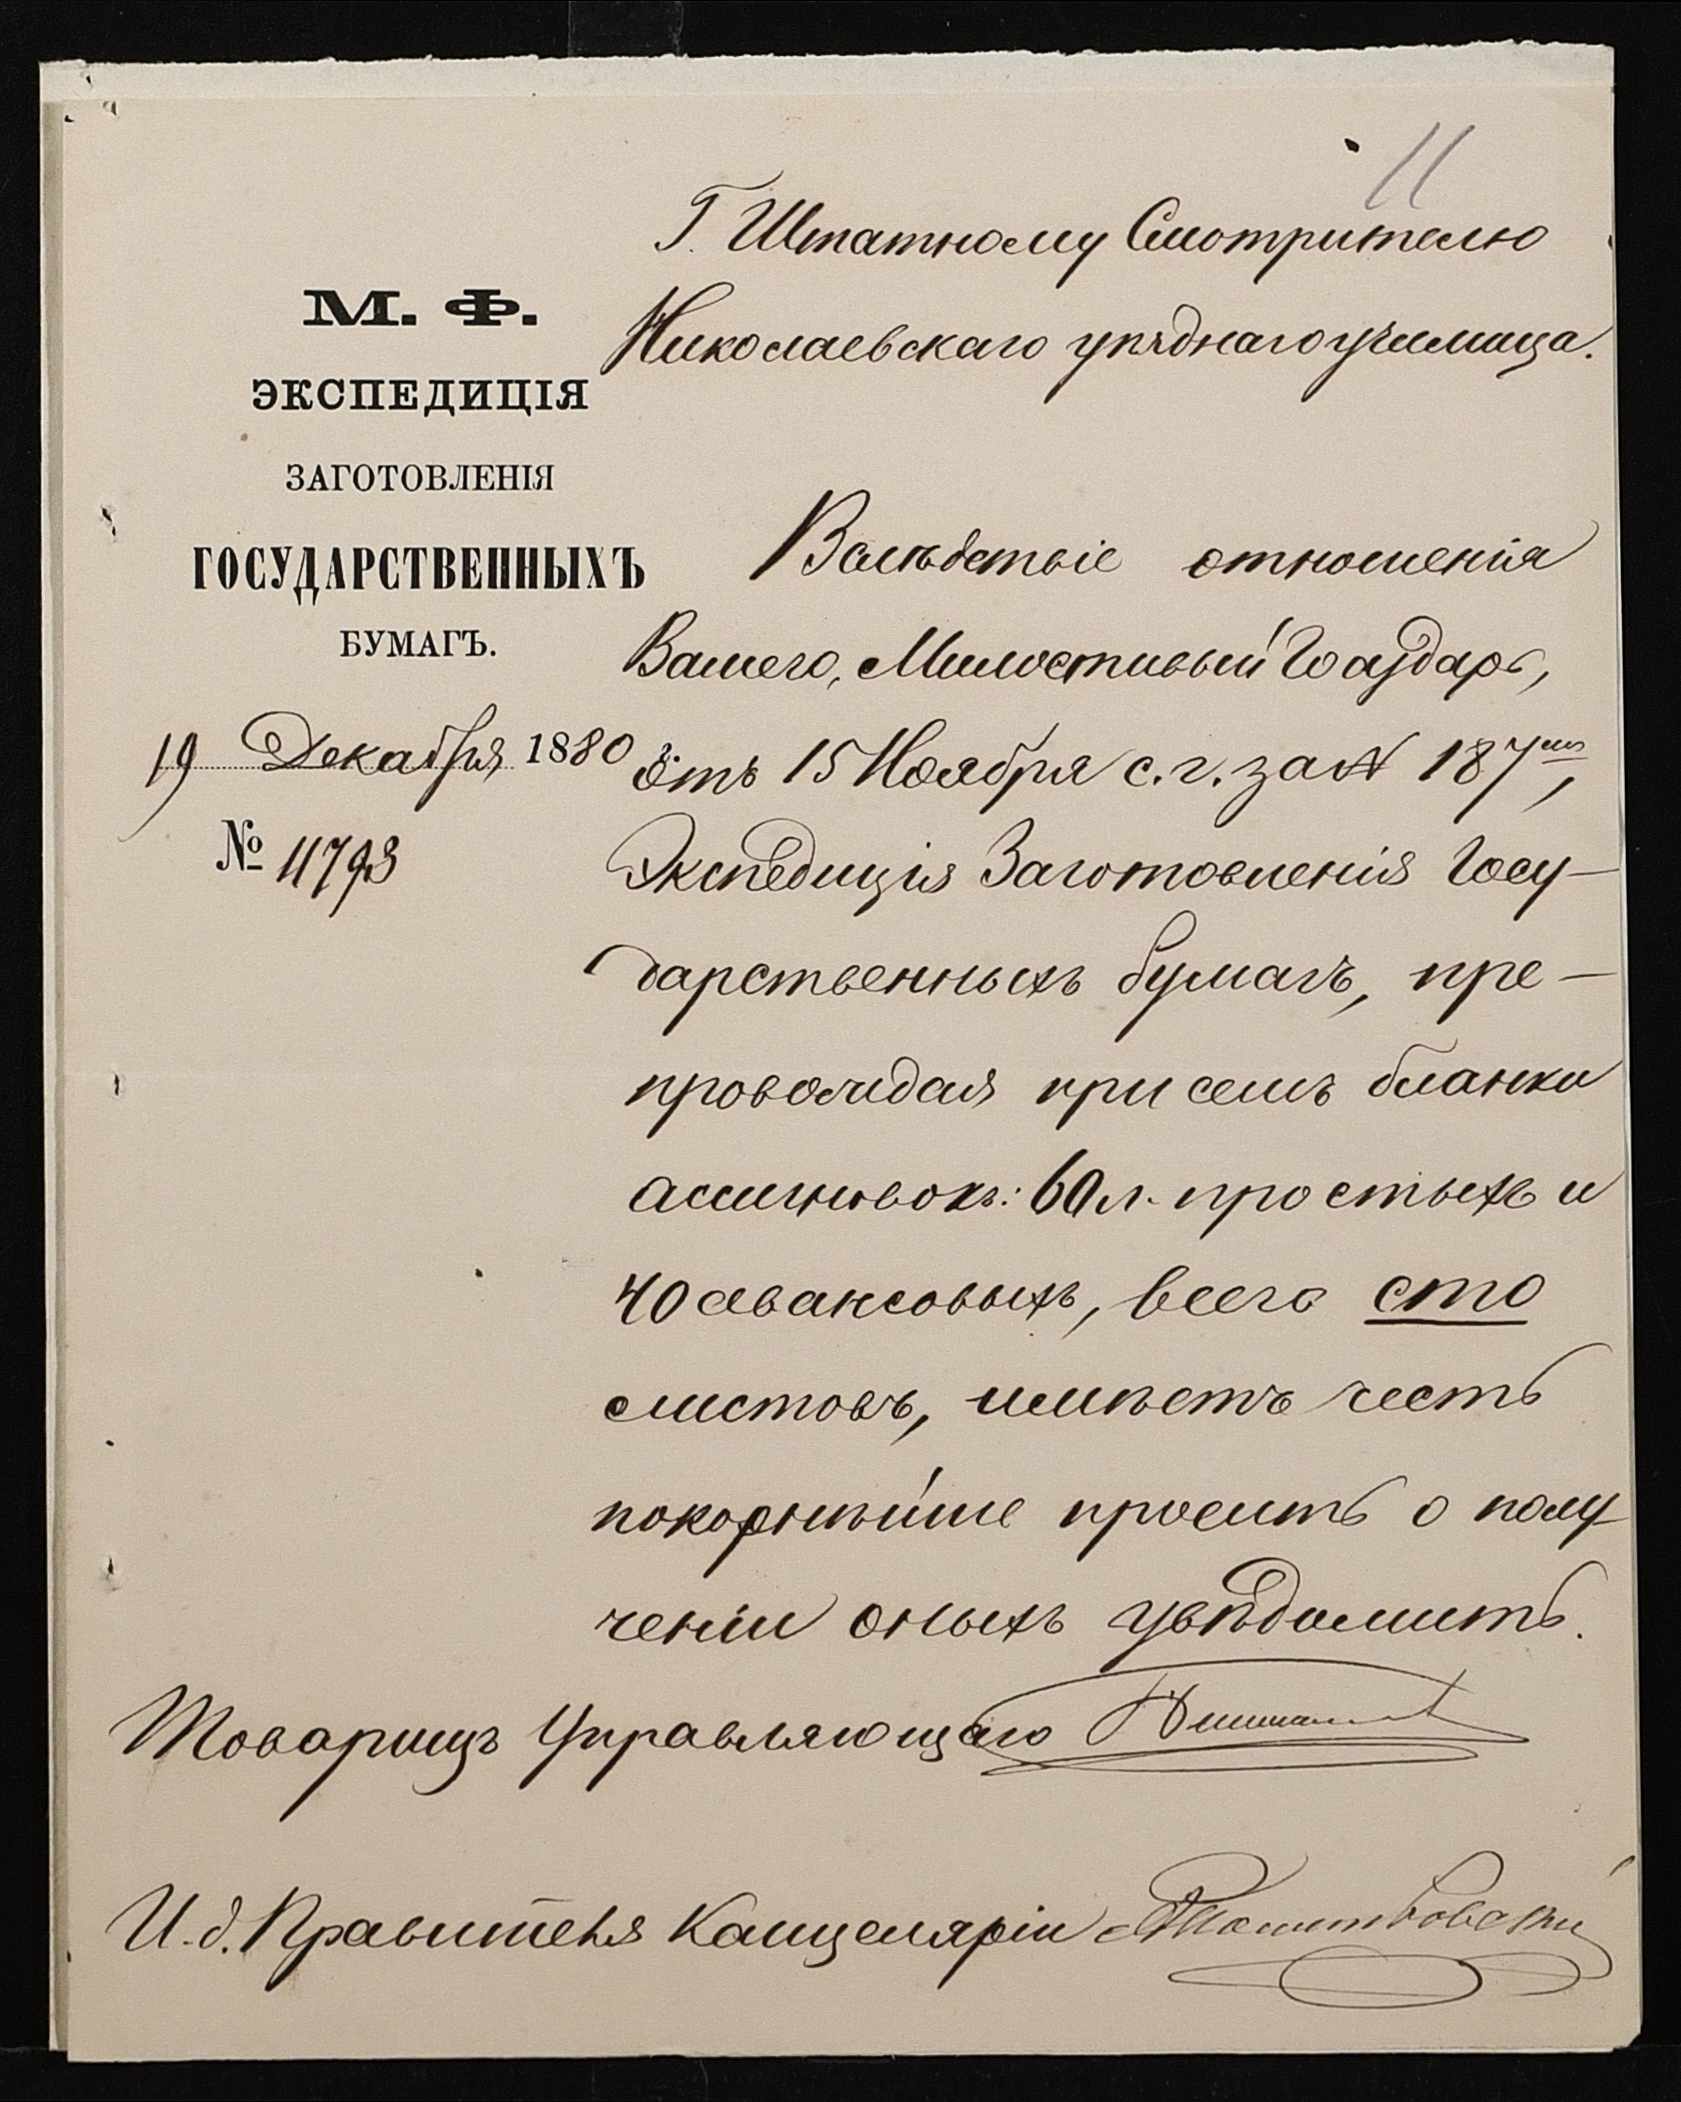 11
Г. Штатному Смотрителю
Николаевскаго уѣзднаго училища.
М. Ф.
ЭКСПЕДИЦІЯ
ЗАГОТОВЛЕНІЯ
ГОСУДАРСТВЕННЫХЪ
БУМАГЪ.
19 Декабря 1880
№ 11793
Вслѣдствіе отношенія
Вашего, Милостивый Государь,
отъ 15 Ноября с. г. за № 187,
Экспедиція Заготовленія Госу-
дарственныхъ бумагъ, пре-
провождая при семъ бланки
ассигновокъ: 60 л. простыхъ и
40 авансовыхъ, всего сто
листовъ, имѣетъ честь
покорнѣйше просить о полу-
ченіи оныхъ увѣдомить.
Товарищъ Управляющаго
И. д. Правителя Канцеляріи